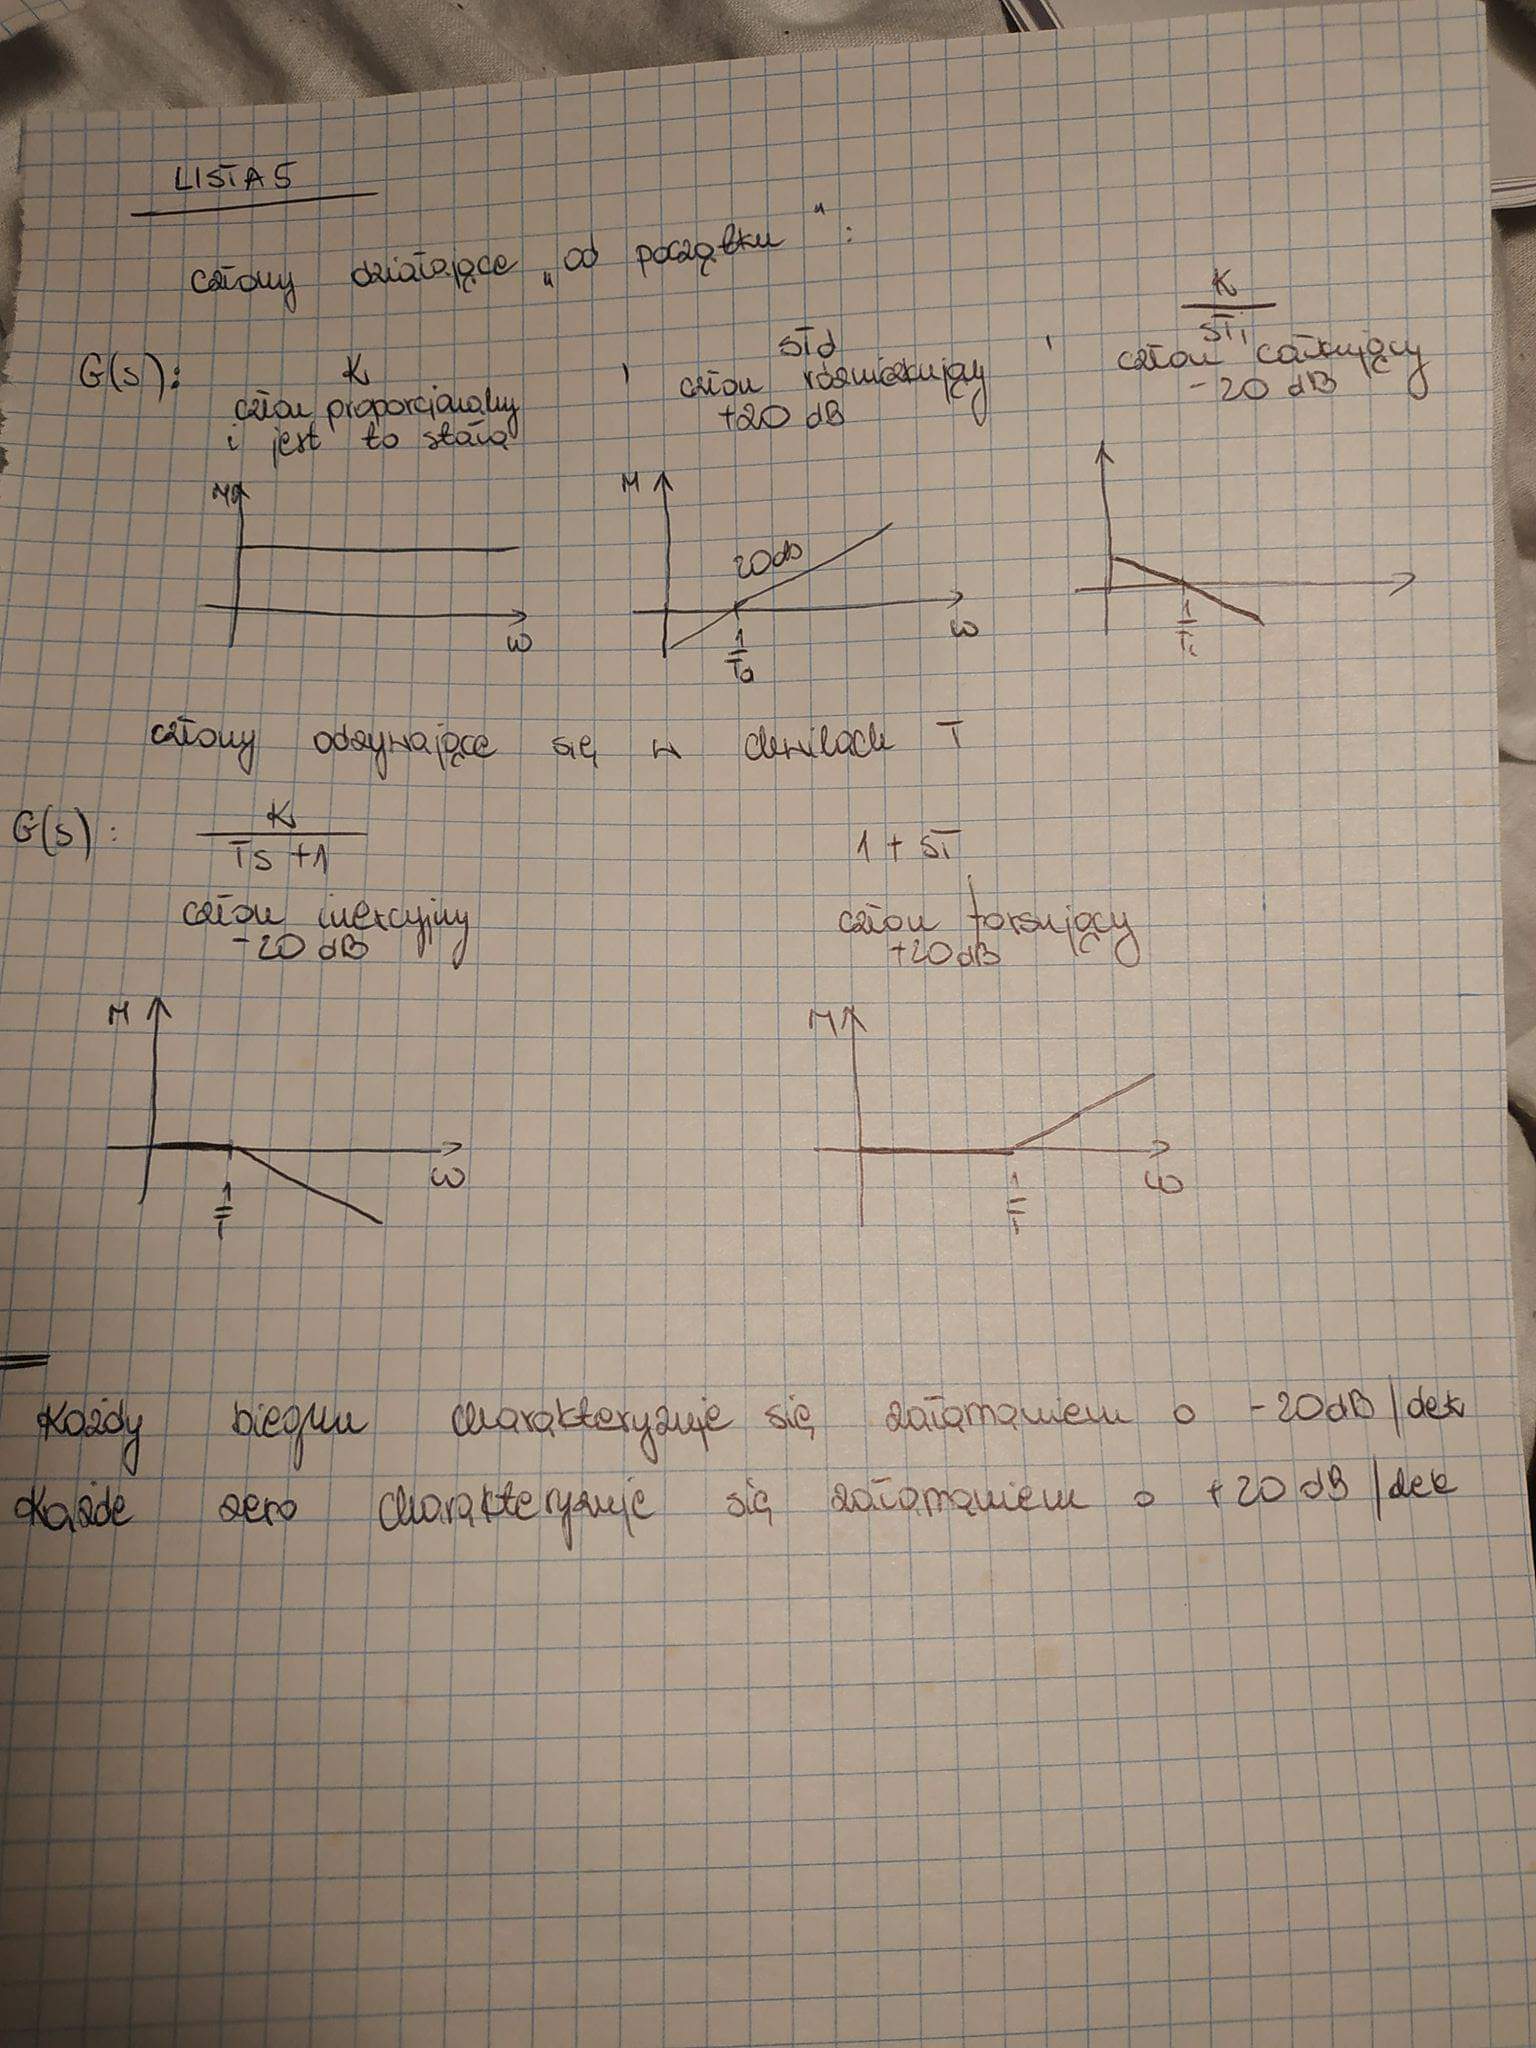 LISTA 5
człony działające „od początku":
G(s): K , sTd , K/sTi
człon proporcjonalny
i jest to stała
człon różniczkujący
+20 dB
człon całkujący
-20 dB
M
ω
M
20db
1/Td
ω
1/Ti
człony odzywające się w chwilach T
G(s): K/Ts+1 1+sT
człon inercyjny
-20 dB
człon forsujący
+20dB
M
1/T
ω
M
1/T
ω
Każdy biegun charakteryzuje się załamaniem o -20dB/dek
Każde zero charakteryzuje się załamaniem o +20dB/dek